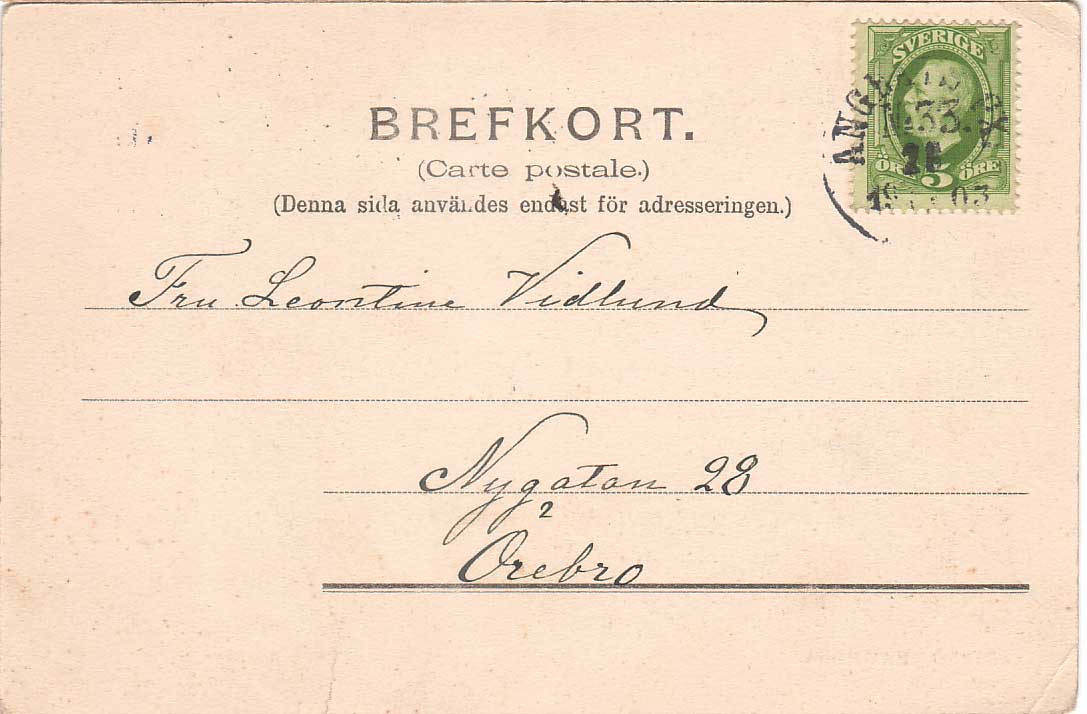 BREFKORT.
(Carte postale.)
(Denna sida användes endast för adresseringen.)
SVERIGE
5
ÖRE
ÖRE
21
03
Fru Leontine Vidlund
Nygatan 28
2
Örebro